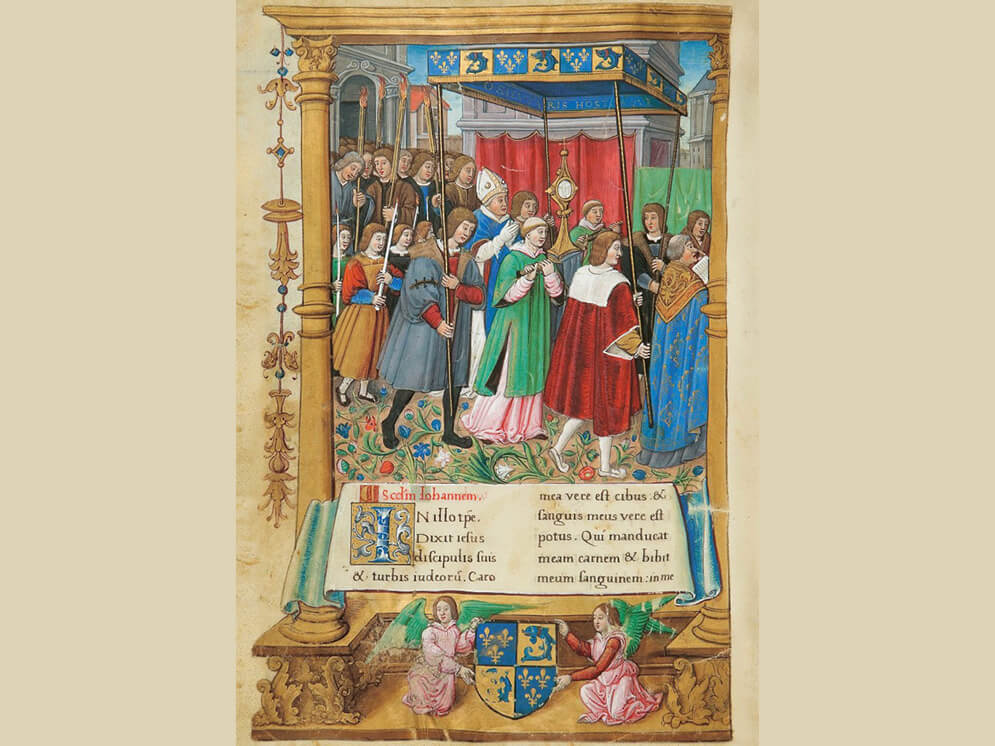 RIS HOS
Scd̄m Iohannem.
IN illo tp̄e.
Dixit iesus
discipulis suis
& turbis iudeorū. Caro
mea vere est cibus. &
sanguis meus vere est
potus. Qui manducat
meam carnem & bibit
meum sanguinem: in me